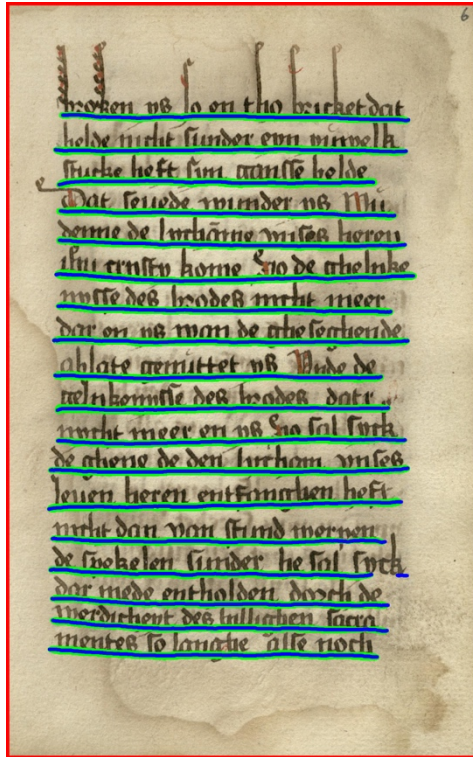 6
broken ys so en tho bricket dat
helde nicht sunder eyn yuwelk
stucke heft sin gansse helde
Dat seuede wunder ys Wu
denne de lychame vnses heren
ihu cristy kome So de ghelnke
nysse des brodes nicht meer
dar en ys wan de ghesechende
ablate genuttet ys Vnde de
gelnkenysse des brodes dar
nycht meer en ys So sal syck
de ghene de den licham vnses
leuen heren entfanghen heft
nicht dan van stund werpen
de spekelen sunder he sal syck
dar mede entholden doych de
werdicheyt des hillighen sacra
mentes so langhe alse noch